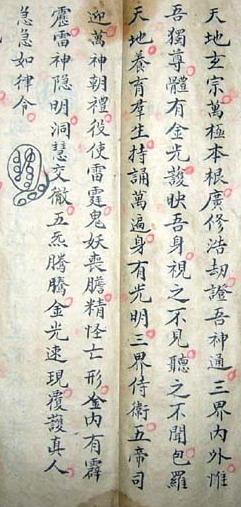 天地玄宗萬極本根廣修浩劫證吾神通三界内外惟
吾獨尊髓有金光護映吾身視之不見聽之不聞包羅
天地養育羣生持誦萬遍身有光明三界侍衛五帝司
迎萬神朝禮後使雷霆鬼妖喪膽精怪亡形金内有霹
靂雷神隐明洞慧交徹五炁騰騰金光速現覆護真人
急急如律令